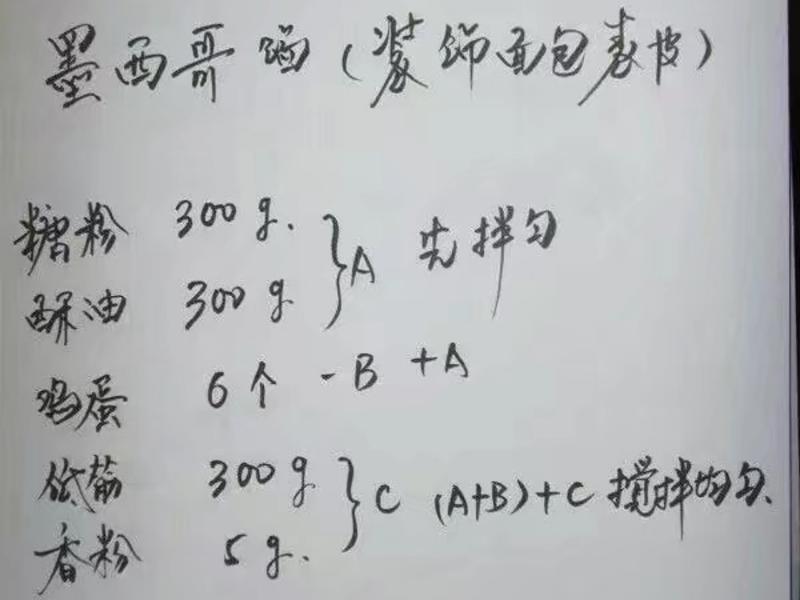 墨西哥馅(装饰面包表皮)
糖粉 300g. } A 先拌匀
酥油 300g
鸡蛋 6个 - B +A
低筋 300g } C (A+B)+C 搅拌均匀、
香粉 5g.